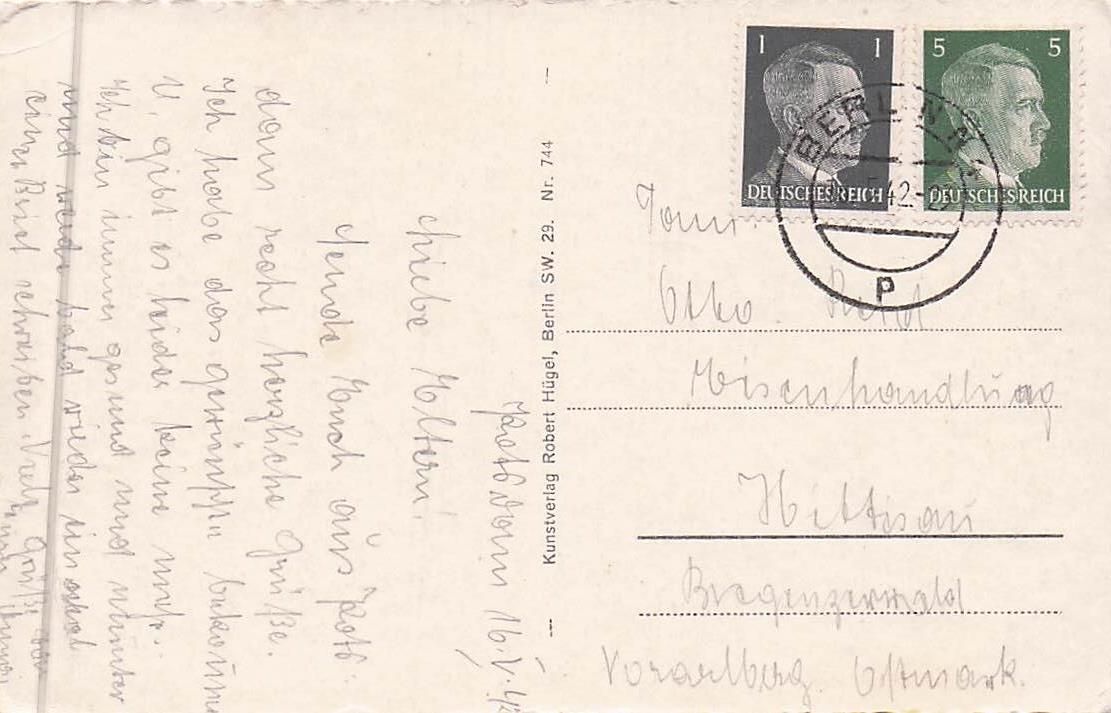 Potsdam 16.V.42
Liebe Eltern!
Sende Euch aus Pots-
dam recht herzliche Grüße.
Ich habe das gewünschte bekomm
U. gibt es leider keine mehr.
Ich bin immer gesund und munter
und werde bald wieder einmal
einen Brief schreiben. Viele Grüße von
Kunstverlag Robert Hügel, Berlin SW. 29. Nr. 744
1 1
DEUTSCHES REICH
5 5
DEUTSCHES REICH
BERLIN
42
P
Fam.
Otto
Eisenhandlung
Hittisau
Bregenzerwald
Vorarlberg. Ostmark.